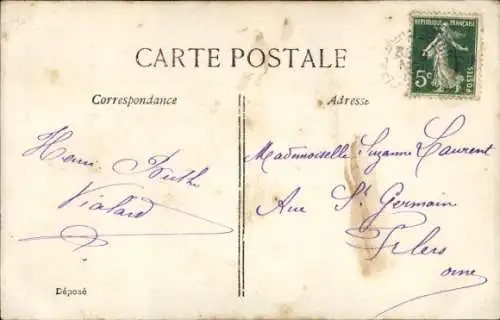 CARTE POSTALE
REPUBLIQUE FRANÇAISE
5c
POSTES
Correspondance
Adresse
Henri Berthe
Vialard
Mademoiselle Suzanne Laurent
Rue St Germain
Flers
orne
Déposé